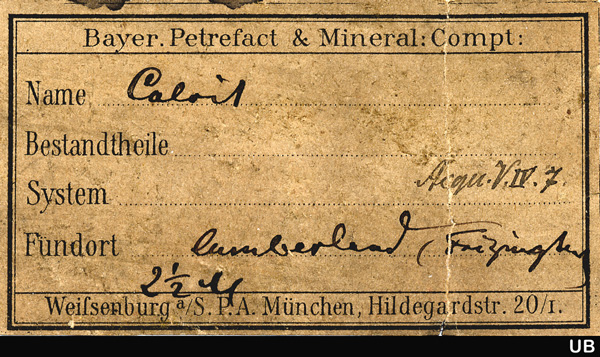 Bayer. Petrefact & Mineral: Compt:
Name Calcit
Bestandtheile
System Acqu. V. IV. 7.
Fundort Cumberland (Frizington
2½ M
Weifsenburg a/S. P. A. München, Hildegardstr. 20/1.
UB